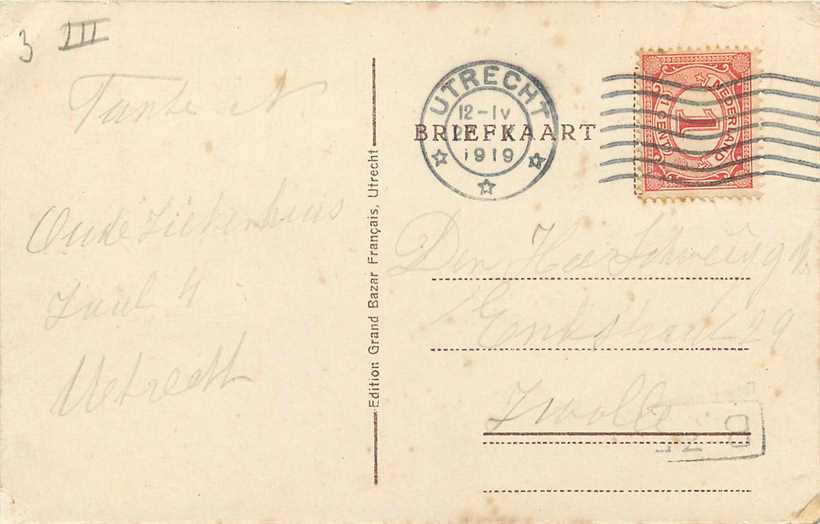 3 III
Tante N
Oude Ziekenhuis
Zaal 4
Utrecht
Edition Grand Bazar Français, Utrecht
BRIEFKAART
UTRECHT
12-IV
1919
NEDERLAND
1
1 CENT
Den Heer
29
Zwolle